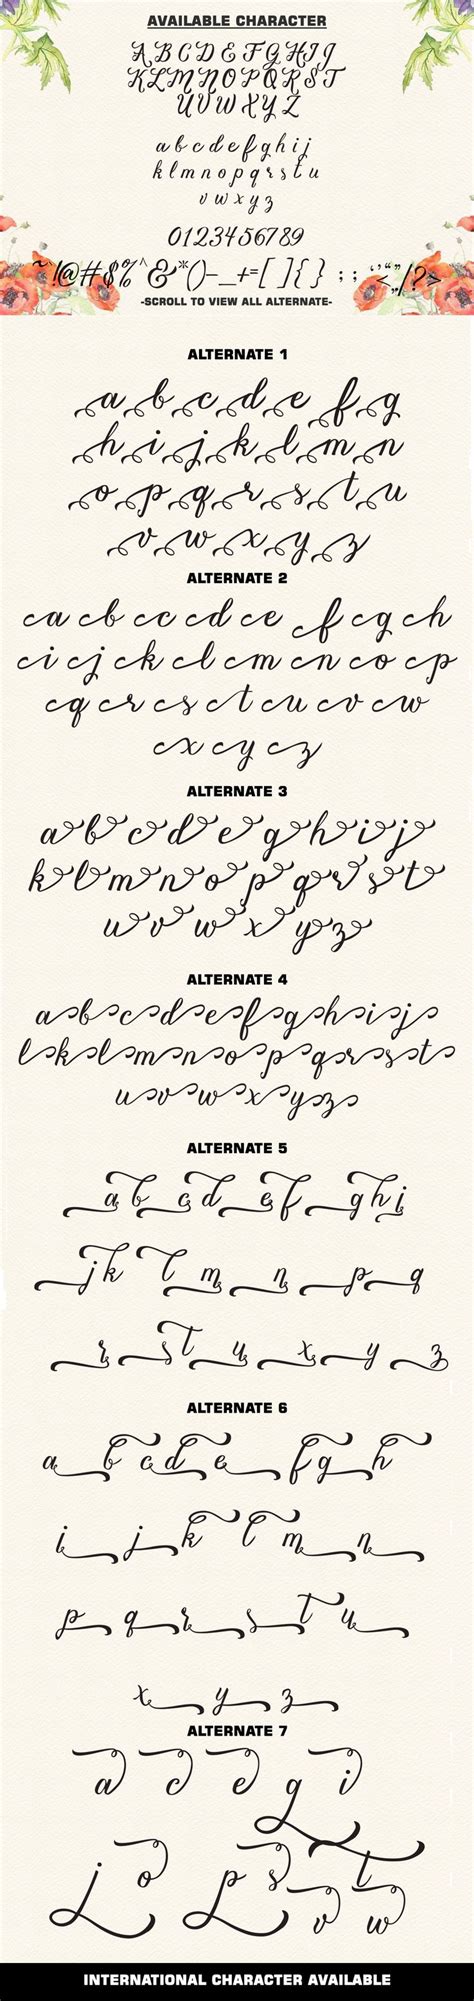 AVAILABLE CHARACTER
ABCDEFGHIJ
KLMNOPQRST
UVWXYZ
abcdefghij
klmnopqrstu
vwxyz
0123456789
~`!@#$%^&*()-_+=[ ]{ } ; : ‘’“” <,„/?>
-SCROLL TO VIEW ALL ALTERNATE-
ALTERNATE 1
a b c d e f g
h i j k l m n
o p q r s t u
v w x y z
ALTERNATE 2
a b c d e f g h
i j k l m n o p
q r s t u v w
x y z
ALTERNATE 3
a b c d e g h i j
k l m n o p q r s t
u v w x y z
ALTERNATE 4
a b c d e f g h i j
l k l m n o p q r s t
u v w x y z
ALTERNATE 5
a b c d e f g h i
j k l m n p q
r s t u x y z
ALTERNATE 6
a b c d e f g h
i j k l m n
p q r s t u
x y z
ALTERNATE 7
a c e g i
j o p s t
v w
INTERNATIONAL CHARACTER AVAILABLE